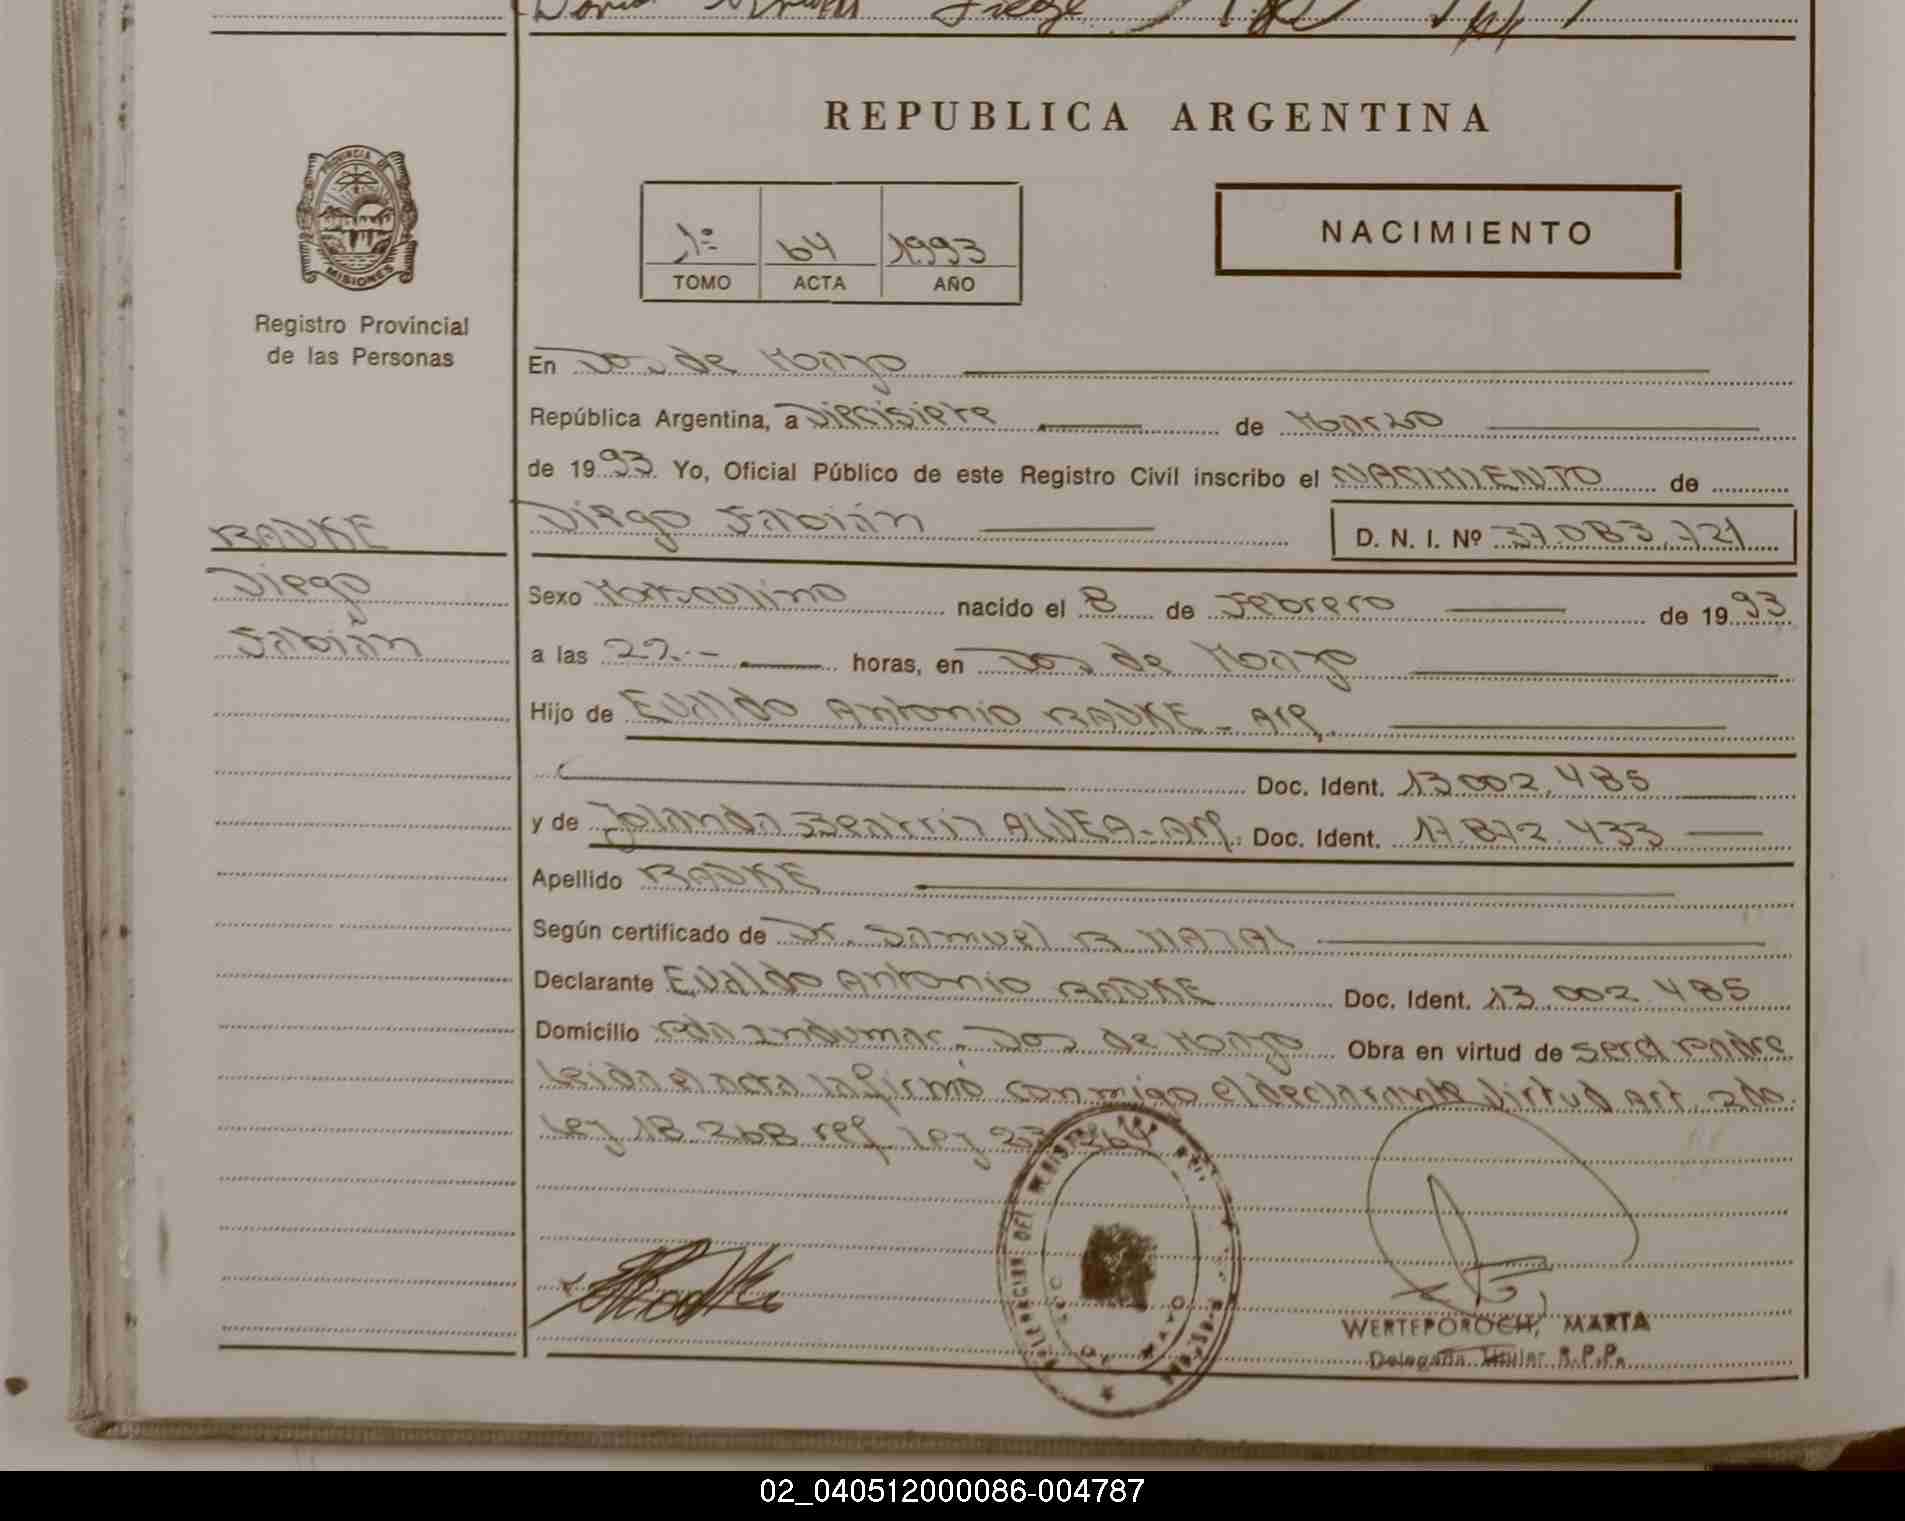 REPUBLICA ARGENTINA
PROVINCIA DE
MISIONES
Registro Provincial
de las Personas
1º 64 1993
TOMO ACTA AÑO
NACIMIENTO
En Dos de Mayo
República Argentina, a Diecisiete de Marzo
de 1993 Yo, Oficial Público de este Registro Civil inscribo el NACIMIENTO de
RADKE
Diego Fabián D. N. I. Nº 37.083.721
Diego
Fabián
Sexo Masculino nacido el 8 de Febrero de 1993
a las 22.- horas, en Dos de Mayo
Hijo de Evaldo Antonio RADKE - Arg.
Doc. Ident. 13.002.485
y de Yolanda Beatriz Arg. Doc. Ident. 17.872.433
Apellido RADKE
Según certificado de Dr. Samuel R.
Declarante Evaldo Antonio RADKE Doc. Ident. 13.002.485
Domicilio Dos de Mayo Obra en virtud de ser el Padre
Leída el acta la firmó conmigo el declarante Virtud Art. 2do.
Ley 18.268 ref. Ley 23.264
WERTEPOROCH, MARTA
Delegada Titular R.P.P.
02_040512000086-004787